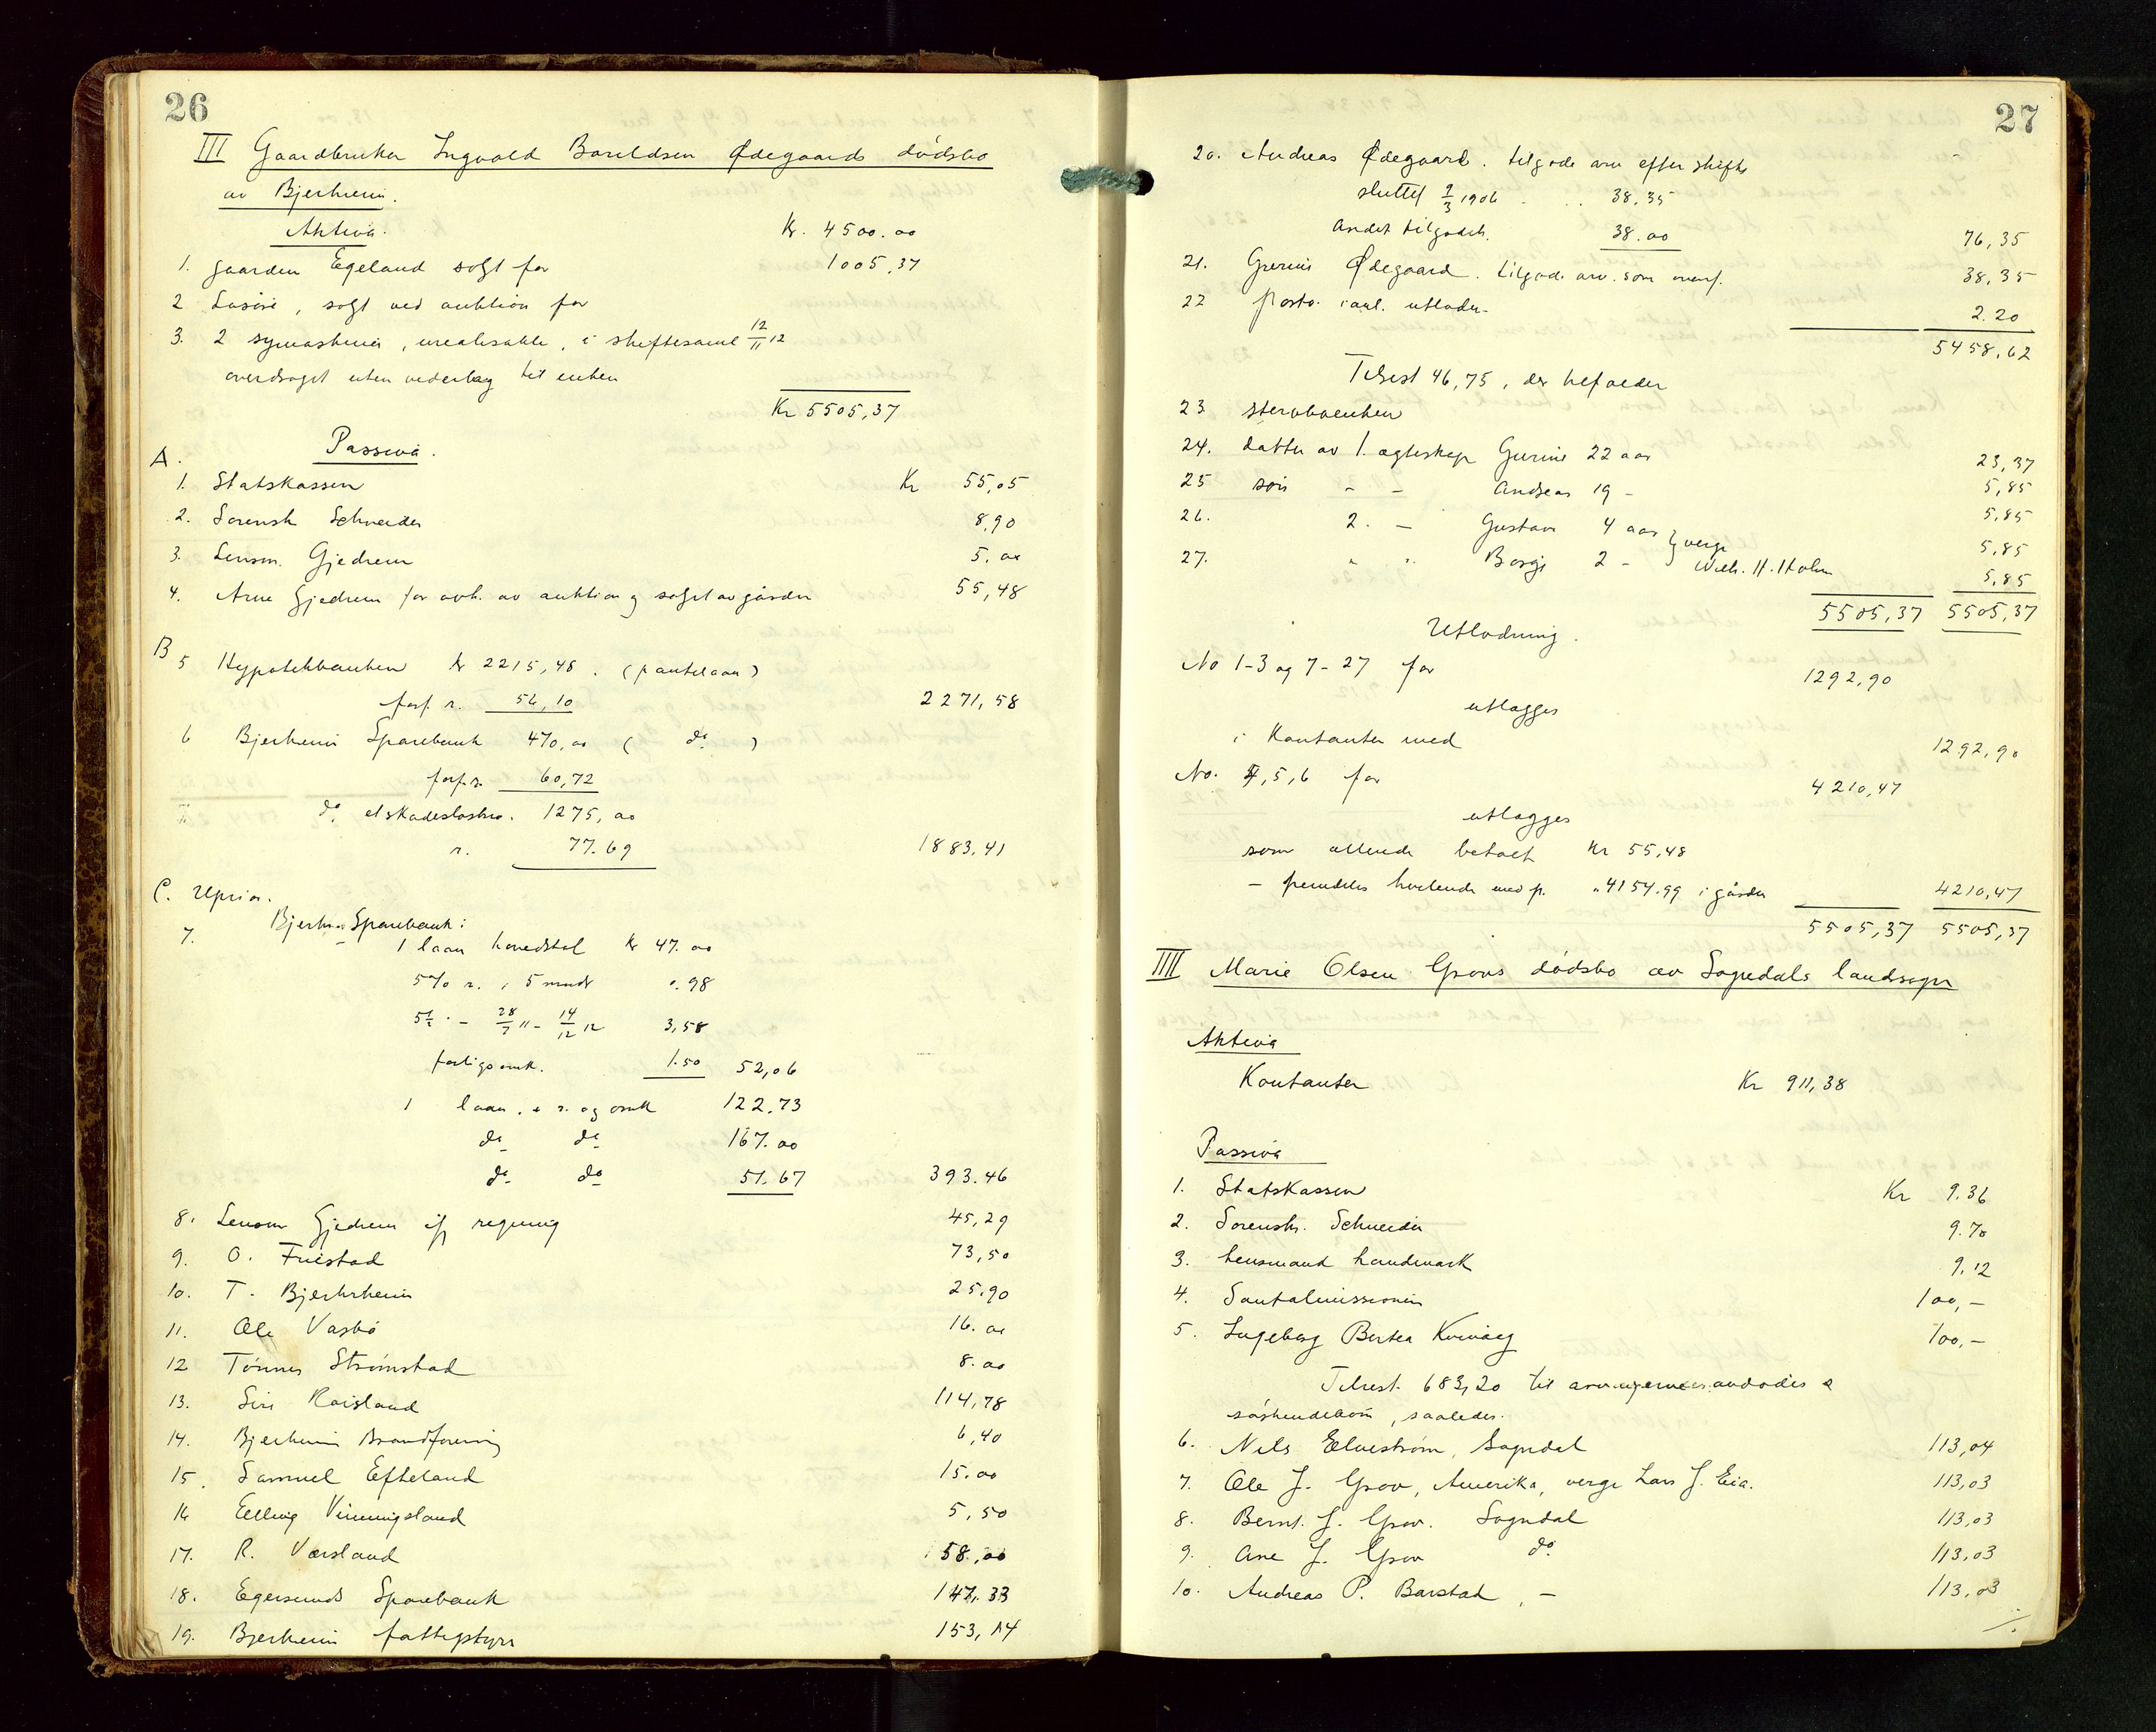 26
III Gaardbruker Ingvald Bareldsen Ødegaards dødsbo
av Bjerkreim.
Aktiva.
1. gaarden Egeland solgt for Kr. 4500.00
2 Løsøre, solgt ved auktion for 1005,37
3. 2 symaskiner, urealisable, i skiftesaml 12/11 12
overdraget uten vederlag til enken
Kr 5505,37
Passiva.
A.
1. Statskassen Kr 55,05
2. Sorensk Schneider 8,90
3. Lensm. Gjedrem 5.00
4. Arne Gjedrem for avh. av auktion og salget av gården 55,48
B
5 Hypotekbanken kr 2215,48. (pantelaan)
forf r. 56,10 2271,58
6 Bjerkreim Sparebank 470,00 ( do. )
forf. r. 60,72
do. et skadesløsbr. 1275,00
r. 77.69 1883,41
C. Uprior.
7. Bjerkr. Sparebank:
1 laan hovedstol Kr 47.00
5% r. i 5 mndr 0.98
5½ · - 28/7 11 - 14/12 12 3,58
forligsomk. 1.50 52,06
1 laan, + r. og omk 122.73
do do 167.00
do. do 51.67 393.46
8. Lensm Gjedrem if regning 45,29
9. O. Fuestad 73,50
10. T. Bjerkrheim 25,90
11. Ole Vasbø 16.00
12 Tønnes Strømstad 8.00
13. Siri Røisland 114,78
14. Bjerkreim Brandforening 6,40
15. Samuel Efteland 15.00
16 Elling Vinningsland 5,50
17. R. Versland 58,00
18. Egersunds Sparebank 147.33
19. Bjerkreim fattigstyre 153,14
27
20. Andreas Ødegaard. tilgode arv efter skifte
sluttet 9/3 1906 . .. 38,35
andet tilgodeh. 38.00 76,35
21. Gurine Ødegaard. tilgode arv. som ovenf. 38,35
22 Porto i anl. utlodn. 2.20
5458,62
Tilrest 46,75, der tilfalder
23 stervboenken 23,37
24. datter av 1. egteskap Gurine 22 aar 5,85
25 søn - - Andreas 19 - 5,85
26. 2. - Gustav 4 aar } verge 5,85
27. " " Borgi 2 - } Wilh. H. Holm 5,85
5505,37 5505,37
Utlodning.
No 1-3 og 7-27 for 1292,90
utlægges
i Kontanter med 1292,90
No. 4,5,6 for 4210,47
utlægges
som allerede betalt Kr 55,48
- fremdeles heftende med p. " 4154.99 i gården 4210,47
5505,37 5505,37
IIII Marie Olsen Grovs dødsbo av Sogndals landsogn
Aktiva
Kontanter Kr 911,38
Passiva
1. Statskassen Kr 9.36
2. Sorensk. Schneider 9.70
3. lensmand handmark 9,12
4. Santalmissionen 100,-
5. Ingeborg Bertea Kvivåg 100,-
Tilrest. 683,20 til arvingerne
søskendebørn, saaledes.
6. Nils Elvestrøm, Sogndal 113,04
7. Ole J. Grov, Amerika, verge Lars J. Eia. 113,03
8. Bernt. J. Grov. Sogndal 113,03
9. Ane J. Grov do. 113,03
10. Andreas P. Barstad, - 113,03